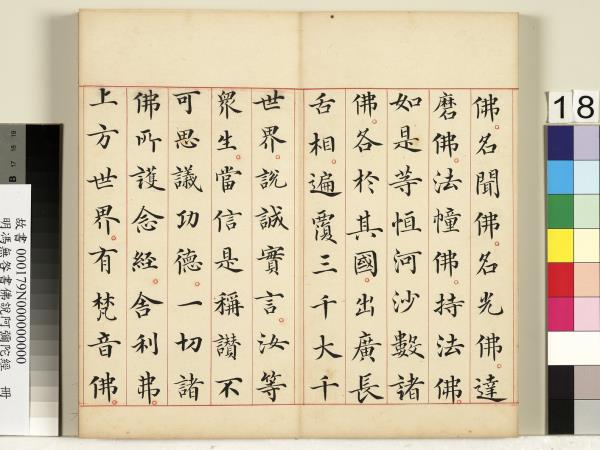 佛。名聞佛。名光佛。達
磨佛。法幢佛。持法佛。
如是等恒河沙數諸
佛。各於其國。出廣長
舌相。遍覆三千大千
世界。說誠實言。汝等
眾生。當信是稱讚不
可思議功德。一切諸
佛所護念經。舍利弗。
上方世界。有梵音佛。
故書 000179N000000000
明馮無咎書佛說阿彌陀經 冊
18